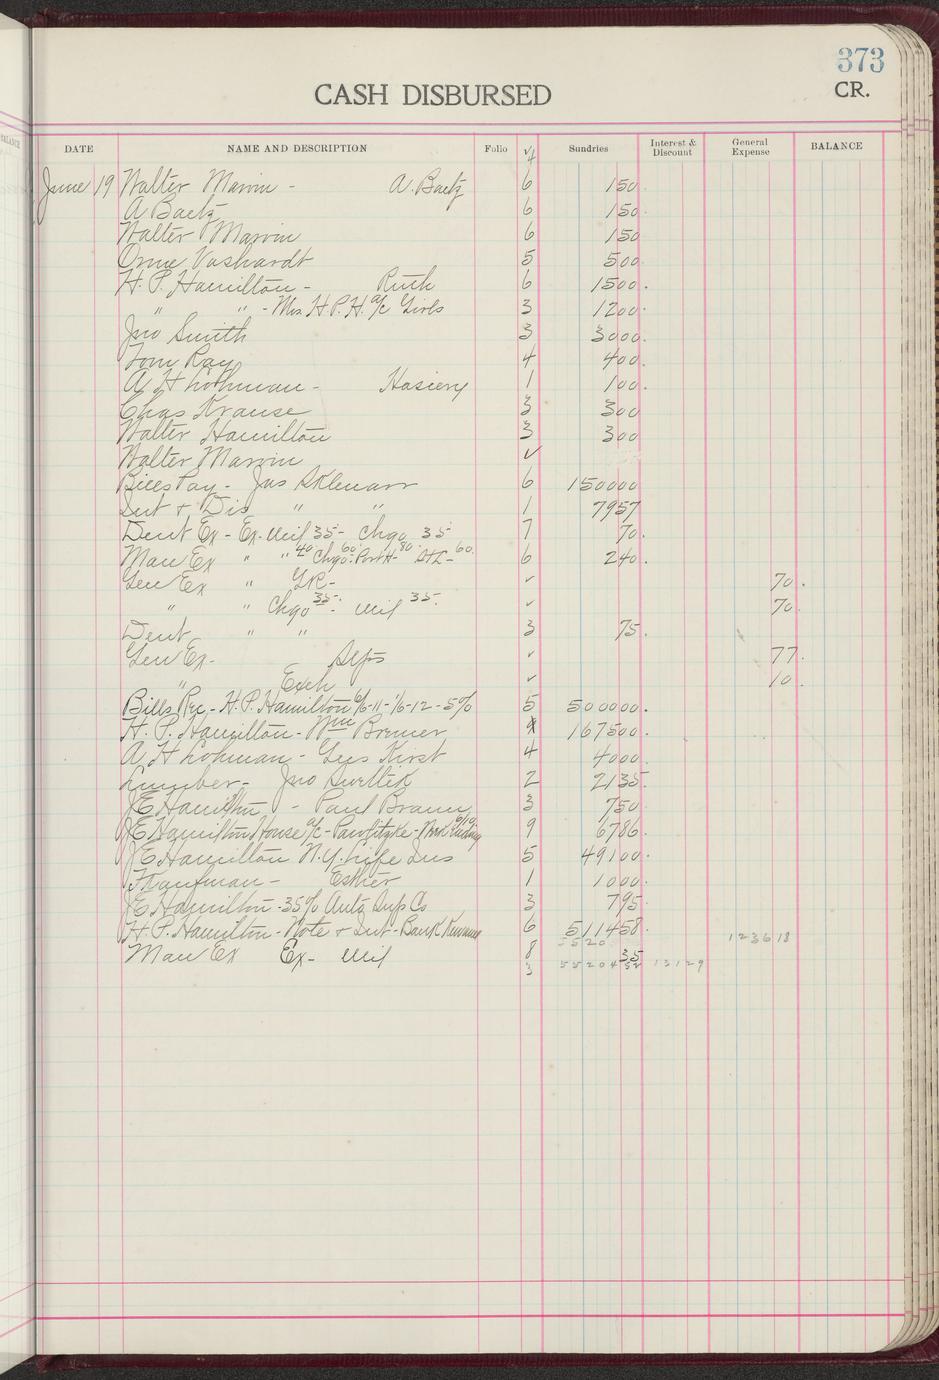 373
CASH DISBURSED
CR.
DATE NAME AND DESCRIPTION Folio √ Sundries Interest & Discount General Expense BALANCE
4
June 19 Walter Marvin - A. Baetz 6 150
A Baetz 6 150
Walter Marvin 6 150
Orme Vashardt 5 500
H. P. Hamilton - Ruth 6 1500
" " - Mrs. H. P. H. a/c Girls 3 1200
Jno Smith 3 3000
Tom Ray 4 400
A H Lohman - Hosiery 1 100
Chas Krause 3 300
Walter Hamilton 3 300
Walter Marvin √
Bills Pay - Jas 6 150000
Int & Dis " " 1 7957
Dent Ex - Ex. Mil 35 - Chgo 35 7 70
Man Ex " " 40 Chgo 60 - Port H - 80 - StL - 60 6 240
Gen Ex " √ 70
" " Chgo 35 - Mil 35 √ 70
Dent " " 3 75
Gen Ex - √ 77
" Exch √ 10
Bills Rec - H. P. Hamilton 6/6-11 - 1/6-12 - 5% 5 500000
H. P. Hamilton - Wm Bremer 4 167500
A H Lohman - Gus Kirst 4 4000
Lumber - Jno 2 2135
J E Hamilton - Paul Braun 3 750
J E Hamilton House a/c - 6/10 9 6786
J E Hamilton N. Y. Life Ins 5 49100
Kaufman - Esther 1 1000
J E Hamilton - 35% Auto Sup Co 3 795
H. P. Hamilton - Note & Int - Bank 6 511458
5520 123618
Man Ex Ex - Mil 8 35
3 55204 52 13129